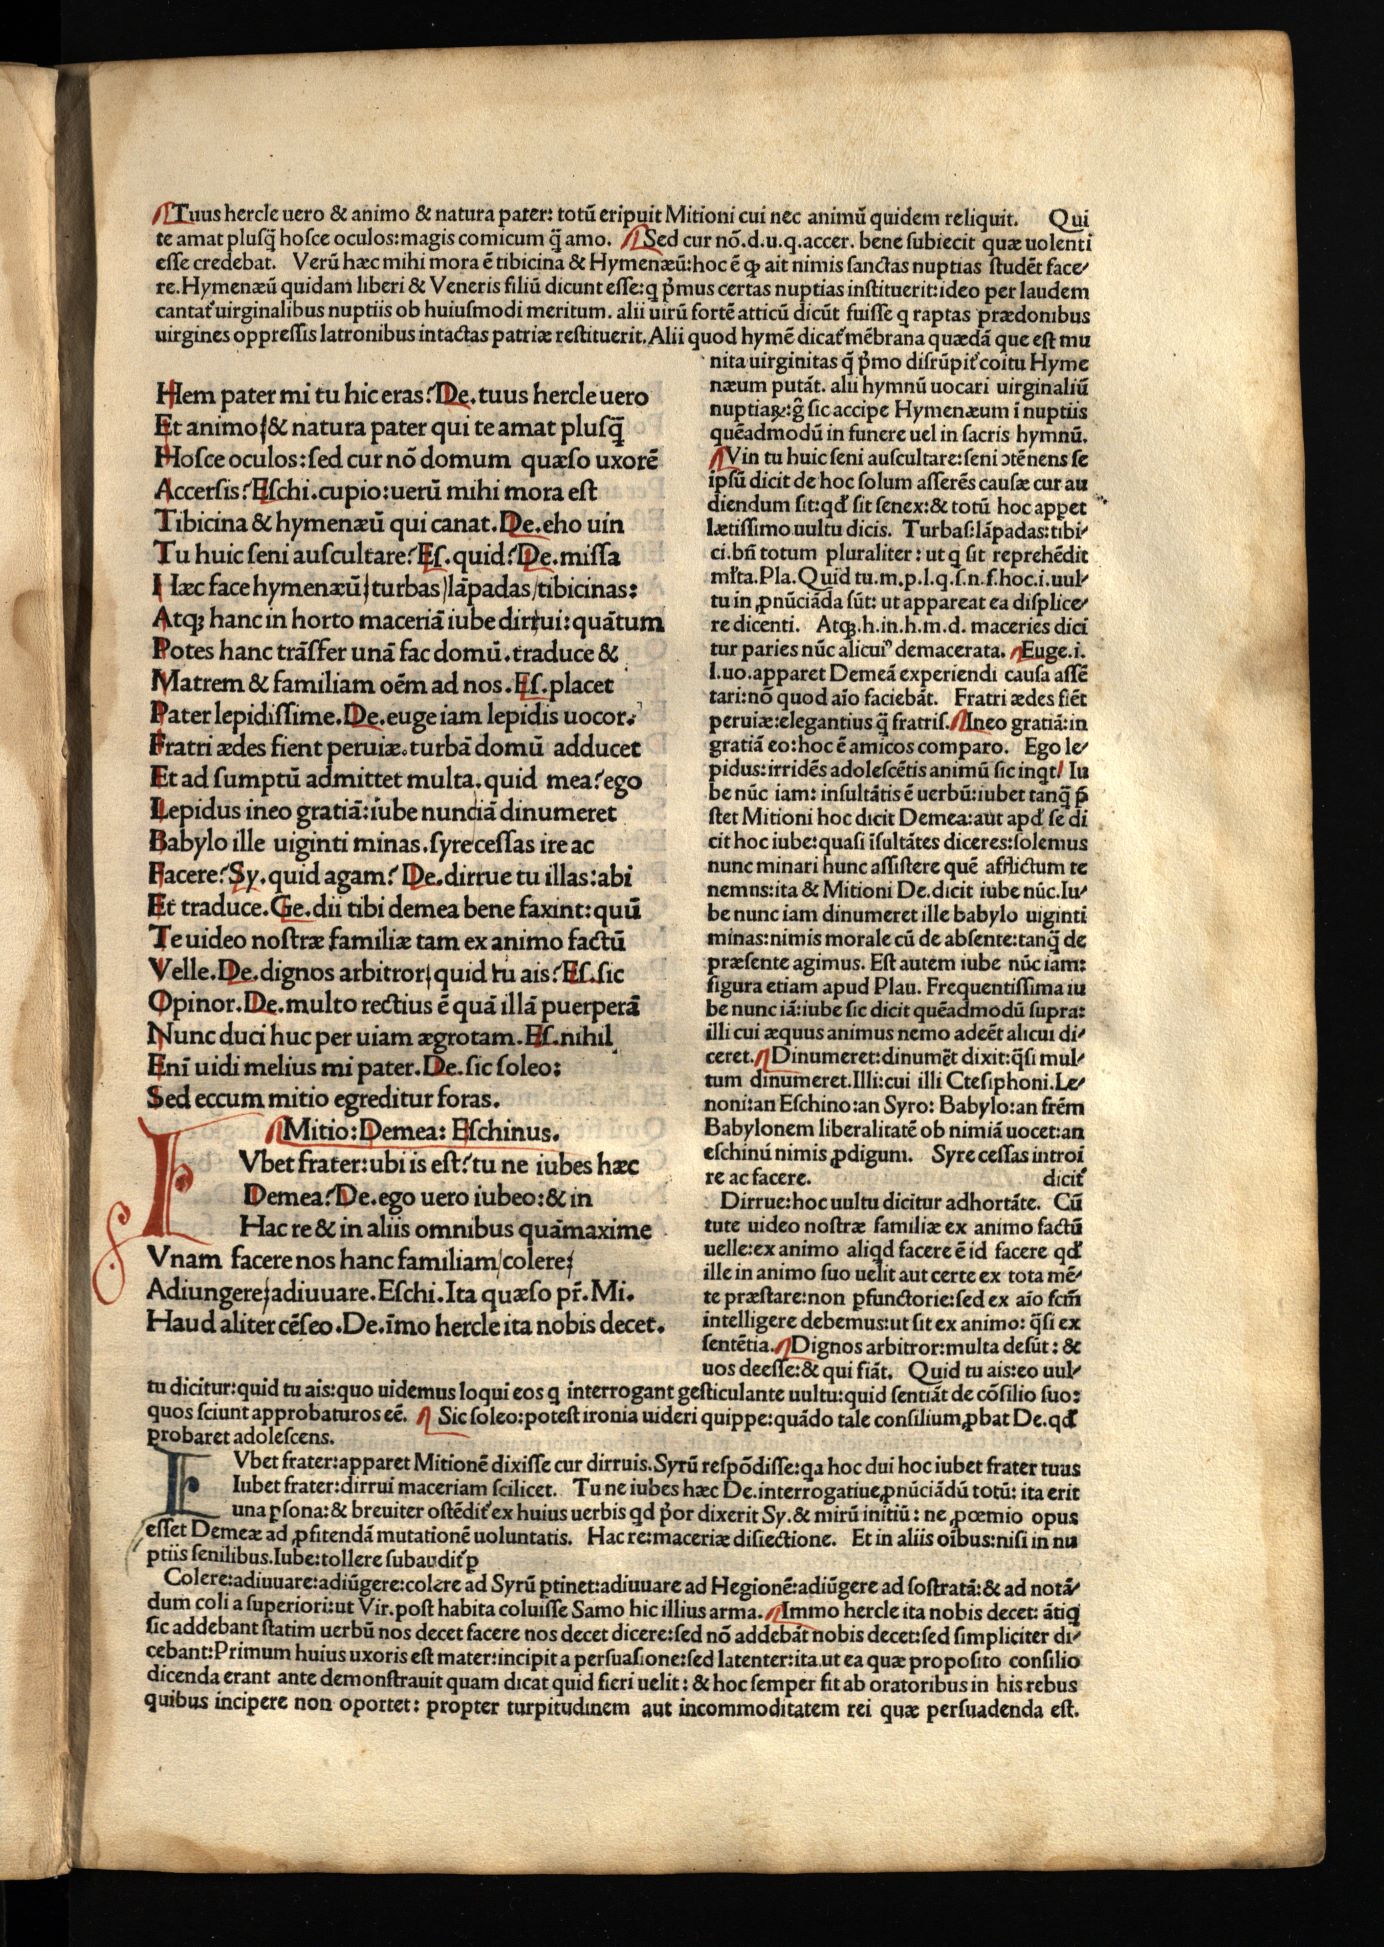 Tuus hercle uero & animo & natura pater: totū eripuit Mitioni cui nec animū quidem reliquit. Qui
te amat plusq̄ hosce oculos:magis comicum q̄ amo. Sed cur nō.d.u.q.accer. bene subiecit quæ uolenti
esse credebat. Verū hæc mihi mora ē tibicina & Hymenæū:hoc ē ꝙ ait nimis sanctas nuptias studēt face⸗
re.Hymenæū quidam liberi & Veneris filiū dicunt esse:q p̄mus certas nuptias instituerit:ideo per laudem
cantat᷑ uirginalibus nuptiis ob huiusmodi meritum. alii uirū fortē atticū dicūt fuisse q raptas prædonibus
uirgines oppressis latronibus intactas patriæ restituerit.Alii quod hymē dicat᷑ mēbrana quædā que est mu
nita uirginitas q̄ p̄mo disrūpit᷑ coitu Hyme
næum putāt. alii hymnū uocari uirginaliū
nuptiaꝝ:g̊ sic accipe Hymenæum ī nuptiis
quēadmodū in funere uel in sacris hymnū.
Vin tu huic seni auscultare:seni ɔtēnens se
ipsū dicit de hoc solum asserēs causæ cur au
diendum sit:qđ sit senex:& totū hoc appet
lætissimo uultu dicis. Turbas:lāpadas:tibi⸗
ci.bn̄ totum pluraliter: ut q sit reprehēdit
mr̄ta.Pla.Quid tu.m.p.l.q.s.n.f.hoc.i.uul⸗
tu in ꝓnūciāda sūt: ut appareat ea displice⸗
re dicenti. Atqꝫ.h.in.h.m.d. maceries dici
tur paries nūc alicuiꝰ demacerata. Euge.i.
l.uo.apparet Demeā experiendi causa assē
tari:nō quod aīo faciebāt. Fratri ædes fiēt
peruiæ:elegantius q̄ fratris. Ineo gratiā:in
gratiā eo:hoc ē amicos comparo. Ego le⸗
pidus:irridēs adolescētis animū sic inqt! Iu
be nūc iam: insultātis ē uerbū:iubet tanq̄ p̄
stet Mitioni hoc dicit Demea:aut apđ se di
cit hoc iube:quasi īsultātes diceres:solemus
nunc minari hunc assistere quē afflictum te
nemns:ita & Mitioni De.dicit iube nūc.Iu⸗
be nunc iam dinumeret ille babylo uiginti
minas:nimis morale cū de absente:tanq̄ de
præsente agimus. Est autem iube nūc iam:
figura etiam apud Plau. Frequentissima iu
be nunc iā:iube sic dicit quēadmodū supra:
illi cui æquus animus nemo adeēt alicui di⸗
ceret. Dinumeret:dinumēt dixit:q̄si mul⸗
tum dinumeret.Illi:cui illi Ctesiphoni.Le⸗
noni:an Eschino:an Syro: Babylo:an frēm
Babylonem liberalitatē ob nimiā uocet:an
eschinū nimis ꝓdigum. Syre cessas introi
re ac facere. dicit᷑
Dirrue:hoc uultu dicitur adhortāte. Cū
tute uideo nostræ familiæ ex animo factū
uelle:ex animo aliqđ facere ē id facere qđ
ille in animo suo uelit aut certe ex tota mē⸗
te præstare:non pfunctorie:sed ex aīo scm̄
intelligere debemus:ut sit ex animo: q̄si ex
sentētia. Dignos arbitror:multa desūt: &
uos deesse:& qui fiāt. Quid tu ais:eo uul⸗
Hem pater mi tu hic eras? De.tuus hercle uero
Et animo/& natura pater qui te amat plusq̄
Hosce oculos:sed cur nō domum quæso uxorē
Accersis? Eschi.cupio:uerū mihi mora est
Tibicina & hymenæū qui canat.De.eho uin
Tu huic seni auscultare? Es.quid? De.missa
Hæc face hymenæū/turbas/lāpadas/tibicinas:
Atqꝫ hanc in horto maceriā iube dirrui:quātum
Potes hanc trāsfer unā fac domū.traduce &
Matrem & familiam oēm ad nos.Es.placet
Pater lepidissime.De.euge iam lepidis uocor.
Fratri ædes fient peruiæ.turbā domū adducet
Et ad sumptū admittet multa.quid mea?ego
Lepidus ineo gratiā:iube nunciā dinumeret
Babylo ille uiginti minas.syrecessas ire ac
Facere?Sy.quid agam? De.dirrue tu illas:abi
Et traduce.Ge.dii tibi demea bene faxint:quū
Te uideo nostræ familiæ tam ex animo factū
Velle.De.dignos arbitror/quid tu ais?Es.sic
Opinor.De.multo rectius ē quā illā puerperā
Nunc duci huc per uiam ægrotam.Es.nihil
Enī uidi melius mi pater.De.sic soleo:
Sed eccum mitio egreditur foras.
Mitio:Demea: Eschinus.
IVbet frater:ubi is est?tu ne iubes hæc
Demea?De.ego uero iubeo:& in
Hac re & in aliis omnibus quāmaxime
Vnam facere nos hanc familiam/colere/
Adiungere/adiuuare.Eschi.Ita quæso pr̄.Mi.
Haud aliter cēseo.De.īmo hercle ita nobis decet.
tu dicitur:quid tu ais:quo uidemus loqui eos q interrogant gesticulante uultu:quid sentiāt de cōsilio suo:
quos sciunt approbaturos eē. Sic soleo:potest ironia uideri quippe:quādo tale consilium ꝓbat De.qđ
probaret adolescens.
IVbet frater:apparet Mitionē dixisse cur dirruis.Syrū respōdisse:qa hoc dui hoc iubet frater tuus
Iubet frater:dirrui maceriam scilicet. Tu ne iubes hæc De.interrogatiue ꝓnūciādū totū: ita erit
una psona:& breuiter ostēdit᷑ ex huius uerbis qđ p̄or dixerit Sy.& mirū initiū: ne ꝓœmio opus
esset Demeæ ad ꝓfitendā mutationē uoluntatis. Hac re:maceriæ disiectione. Et in aliis oībus:nisi in nu
ptiis senilibus.Iube:tollere subaudit᷑ p
Colere:adiuuare:adiūgere:colere ad Syrū ptinet:adiuuare ad Hegionē:adiūgere ad sostratā:& ad notā⸗
dum coli a superiori:ut Vir.post habita coluisse Samo hic illius arma. Immo hercle ita nobis decet: ātiq
sic addebant statim uerbū nos decet facere nos decet dicere:sed nō addebāt nobis decet:sed simpliciter di⸗
cebant:Primum huius uxoris est mater:incipit a persuasione:sed latenter:ita.ut ea quæ proposito consilio
dicenda erant ante demonstrauit quam dicat quid fieri uelit: & hoc semper fit ab oratoribus in his rebus
quibus incipere non oportet: propter turpitudinem aut incommoditatem rei quæ persuadenda est.